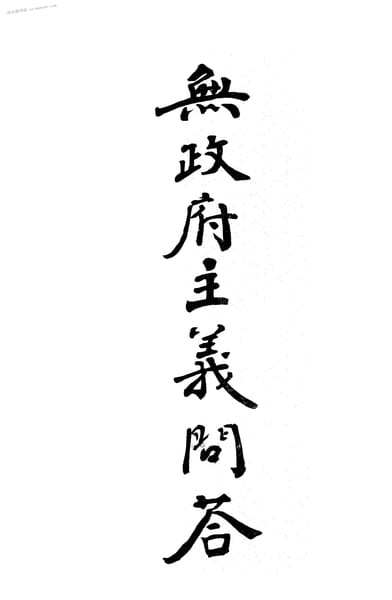 無政府主義問答